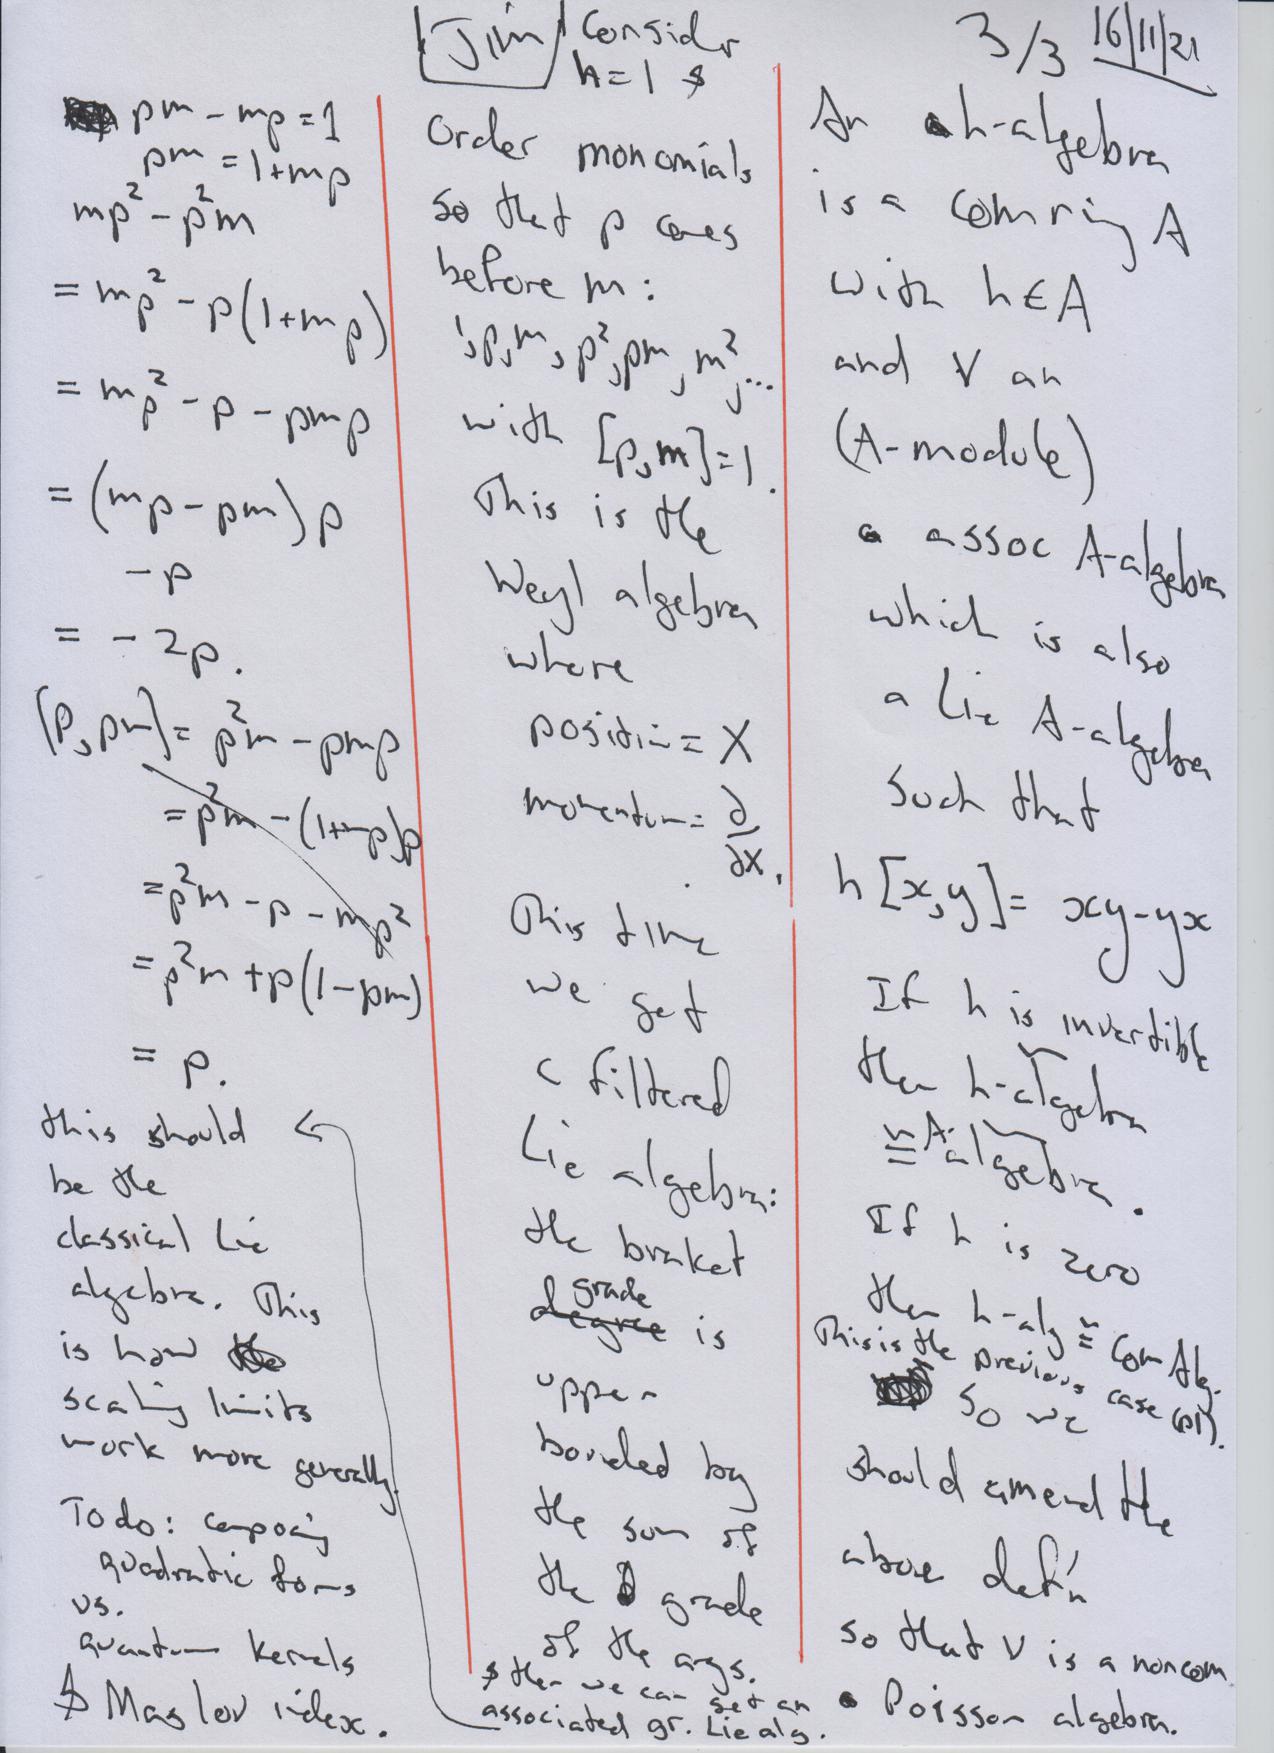 Jim
Consider
h=1 &
3/3 16/11/21
pm - mp = 1
pm = 1+mp
mp² - p²m
= mp² - p(1+mp)
= mp² - p - pmp
= (mp - pm)p
- p
= - 2p.
[p, pm] = p²m - pmp
= p²m - (1+mp)p
= p²m - p - mp²
= p²m + p(1-pm)
= p.
this should
be the
classical Lie
algebra. This
is how
scaling limits
work more generally.
Todo: composing
quadratic forms
vs.
quantum kernels
& Maslov index.
Order monomials
so that p comes
before m:
1, p, m, p², pm, m², ...
with [p, m]=1.
This is the
Weyl algebra
where
position = X
momentum = ∂/∂X.
This time
we get
a filtered
Lie algebra:
the braket
grade
degree is
upper
bounded by
the sum of
the grade
of the args.
& then we can get an
associated gr. Lie alg.
An h-algebra
is a com ring A
with h∈A
and V an
(A-module)
assoc A-algebra
which is also
a Lie A-algebra
such that
h[x,y] = xy-yx
If h is invertible
then h-algebra
≅ A-algebra.
If h is zero
then h-alg ≅ Com Alg.
This is the previous case (p1).
So we
should amend the
above def'n
so that V is a noncom
Poisson algebra.